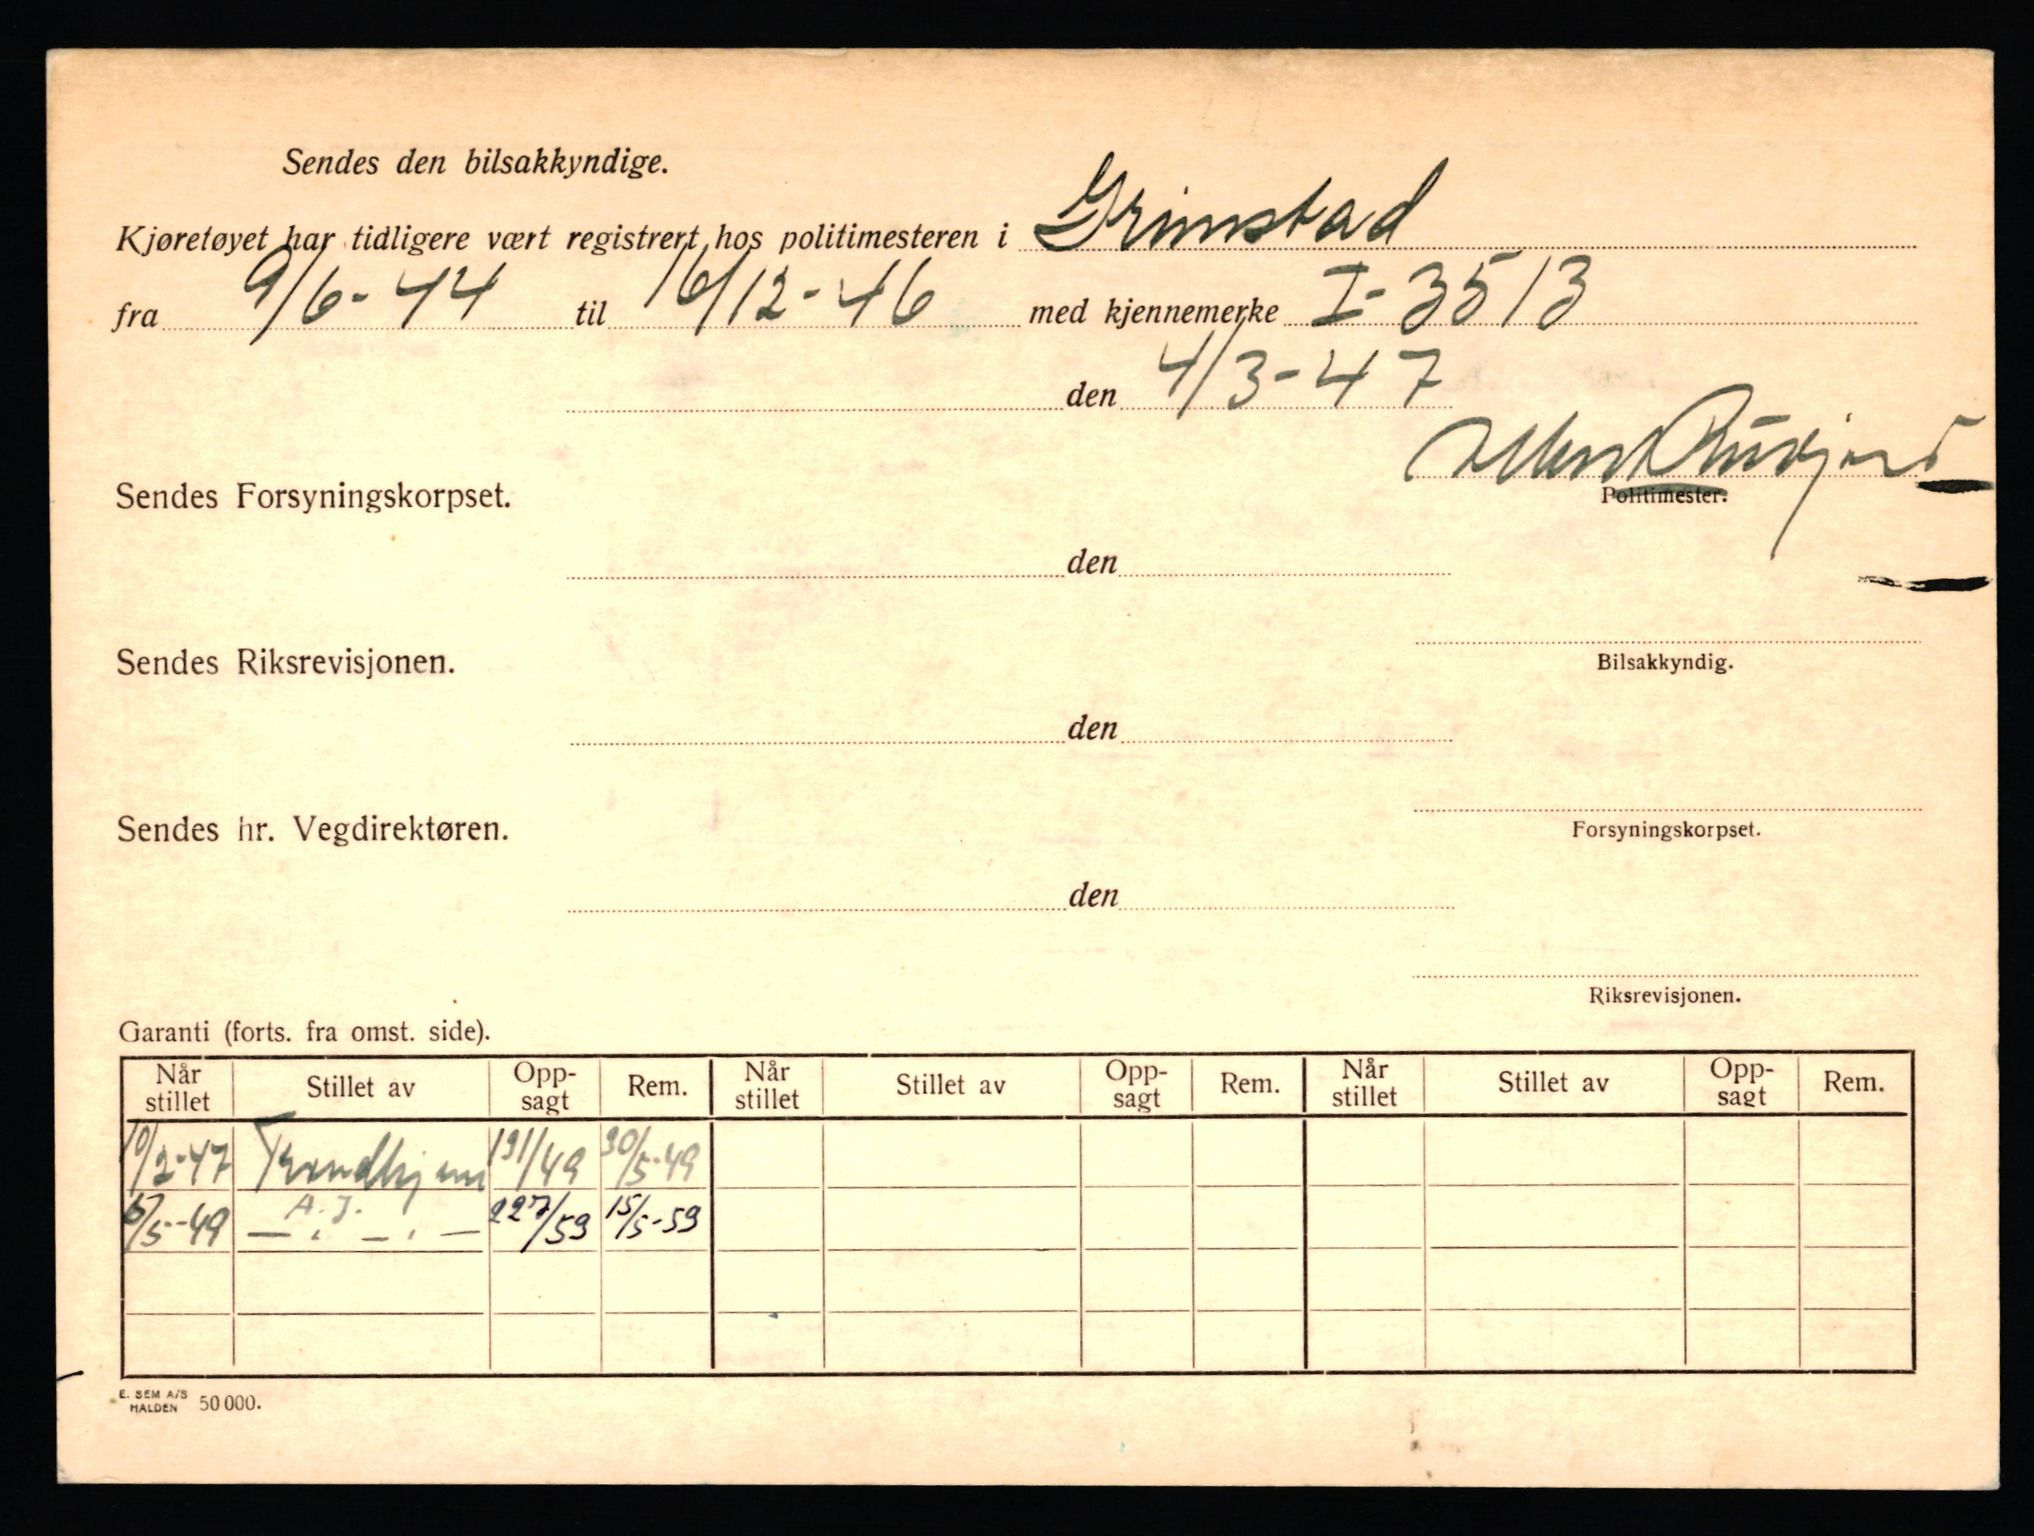 Sendes den bilsakkyndige.
Kjøretøyet har tidligere vært registrert hos politimesteren i Grimstad
fra 9/6-44 til 16/12-46 med kjennemerke I-3513
den 4/3-47
Sendes Forsyningskorpset.
Politimester.
den
Sendes Riksrevisjonen.
Bilsakkyndig.
den
Sendes hr. Vegdirektøren.
Forsyningskorpset.
den
Riksrevisjonen.
Garanti (forts. fra omst. side).
Når stillet Stillet av Opp-sagt Rem. Når stillet Stillet av Opp-sagt Rem. Når stillet Stillet av Opp-sagt Rem.
10/2-47 Trondhjem 191/49 30/5-49
A.J.
/5-49 — . — . — 227/59 15/5-59
E. SEM A/S
HALDEN 50 000.